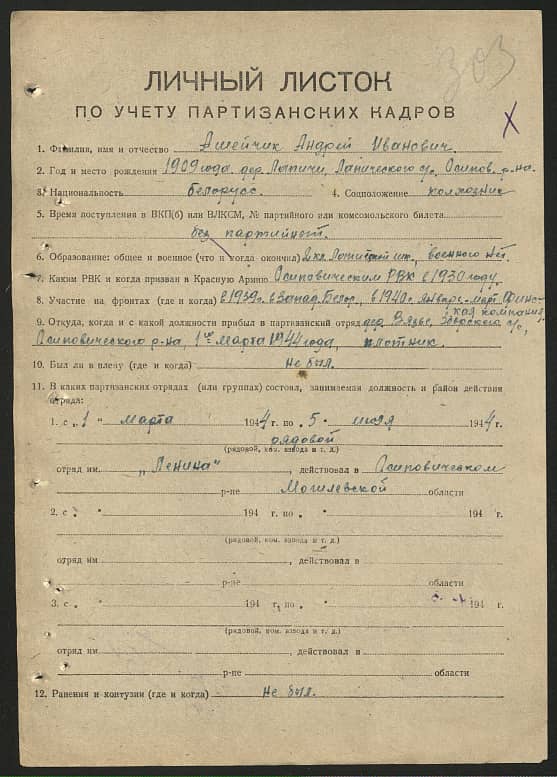 303
ЛИЧНЫЙ ЛИСТОК
ПО УЧЕТУ ПАРТИЗАНСКИХ КАДРОВ
1. Фамилия, имя и отчество Ашейчик Андрей Иванович.
2. Год и место рождения 1909 года. дер. Лапичи, Лапического с/с, Осипов. р-на.
3. Национальность белорусс. 4. Соцположение колхозник
5. Время поступления в ВКП(б) или ВЛКСМ, № партийного или комсомольского билета
без партийност.
6. Образование: общее и военное (что и когда окончил) 2 кл. шк., военного нет.
7. Каким РВК и когда призван в Красную Армию Осиповическим РВК в 1930 году.
8. Участие на фронтах (где и когда) в 1939 г. в Запад. Белор., в 1940 г. январь-март. Финс-
кая компания.
9. Откуда, когда и с какой должности прибыл в партизанский отряд дер. Вязье, с/с,
Осиповического р-на, 1го Марта 1944 года, плотник.
10. Был ли в плену (где и когда) не был.
11. В каких партизанских отрядах (или группах) состоял, занимаемая должность и район действия
отряда:
1. с „1 " марта 1944 г. по „5 " июля 1944 г.
рядовой
(рядовой, ком. взвода и т. д.)
отряд им. „Ленина", действовал в Осиповическом
р-не Могилевской области
2. с " " 194 г. по " " 194 г.
(рядовой, ком. взвода и т. д.)
отряд им , действовал в
р-не области
3. с " " 194 г. по " 194 г.
(рядовой, ком. взвода и т. д.)
отряд им , действовал в
р-не области
12. Ранения и контузии (где и когда) не был.